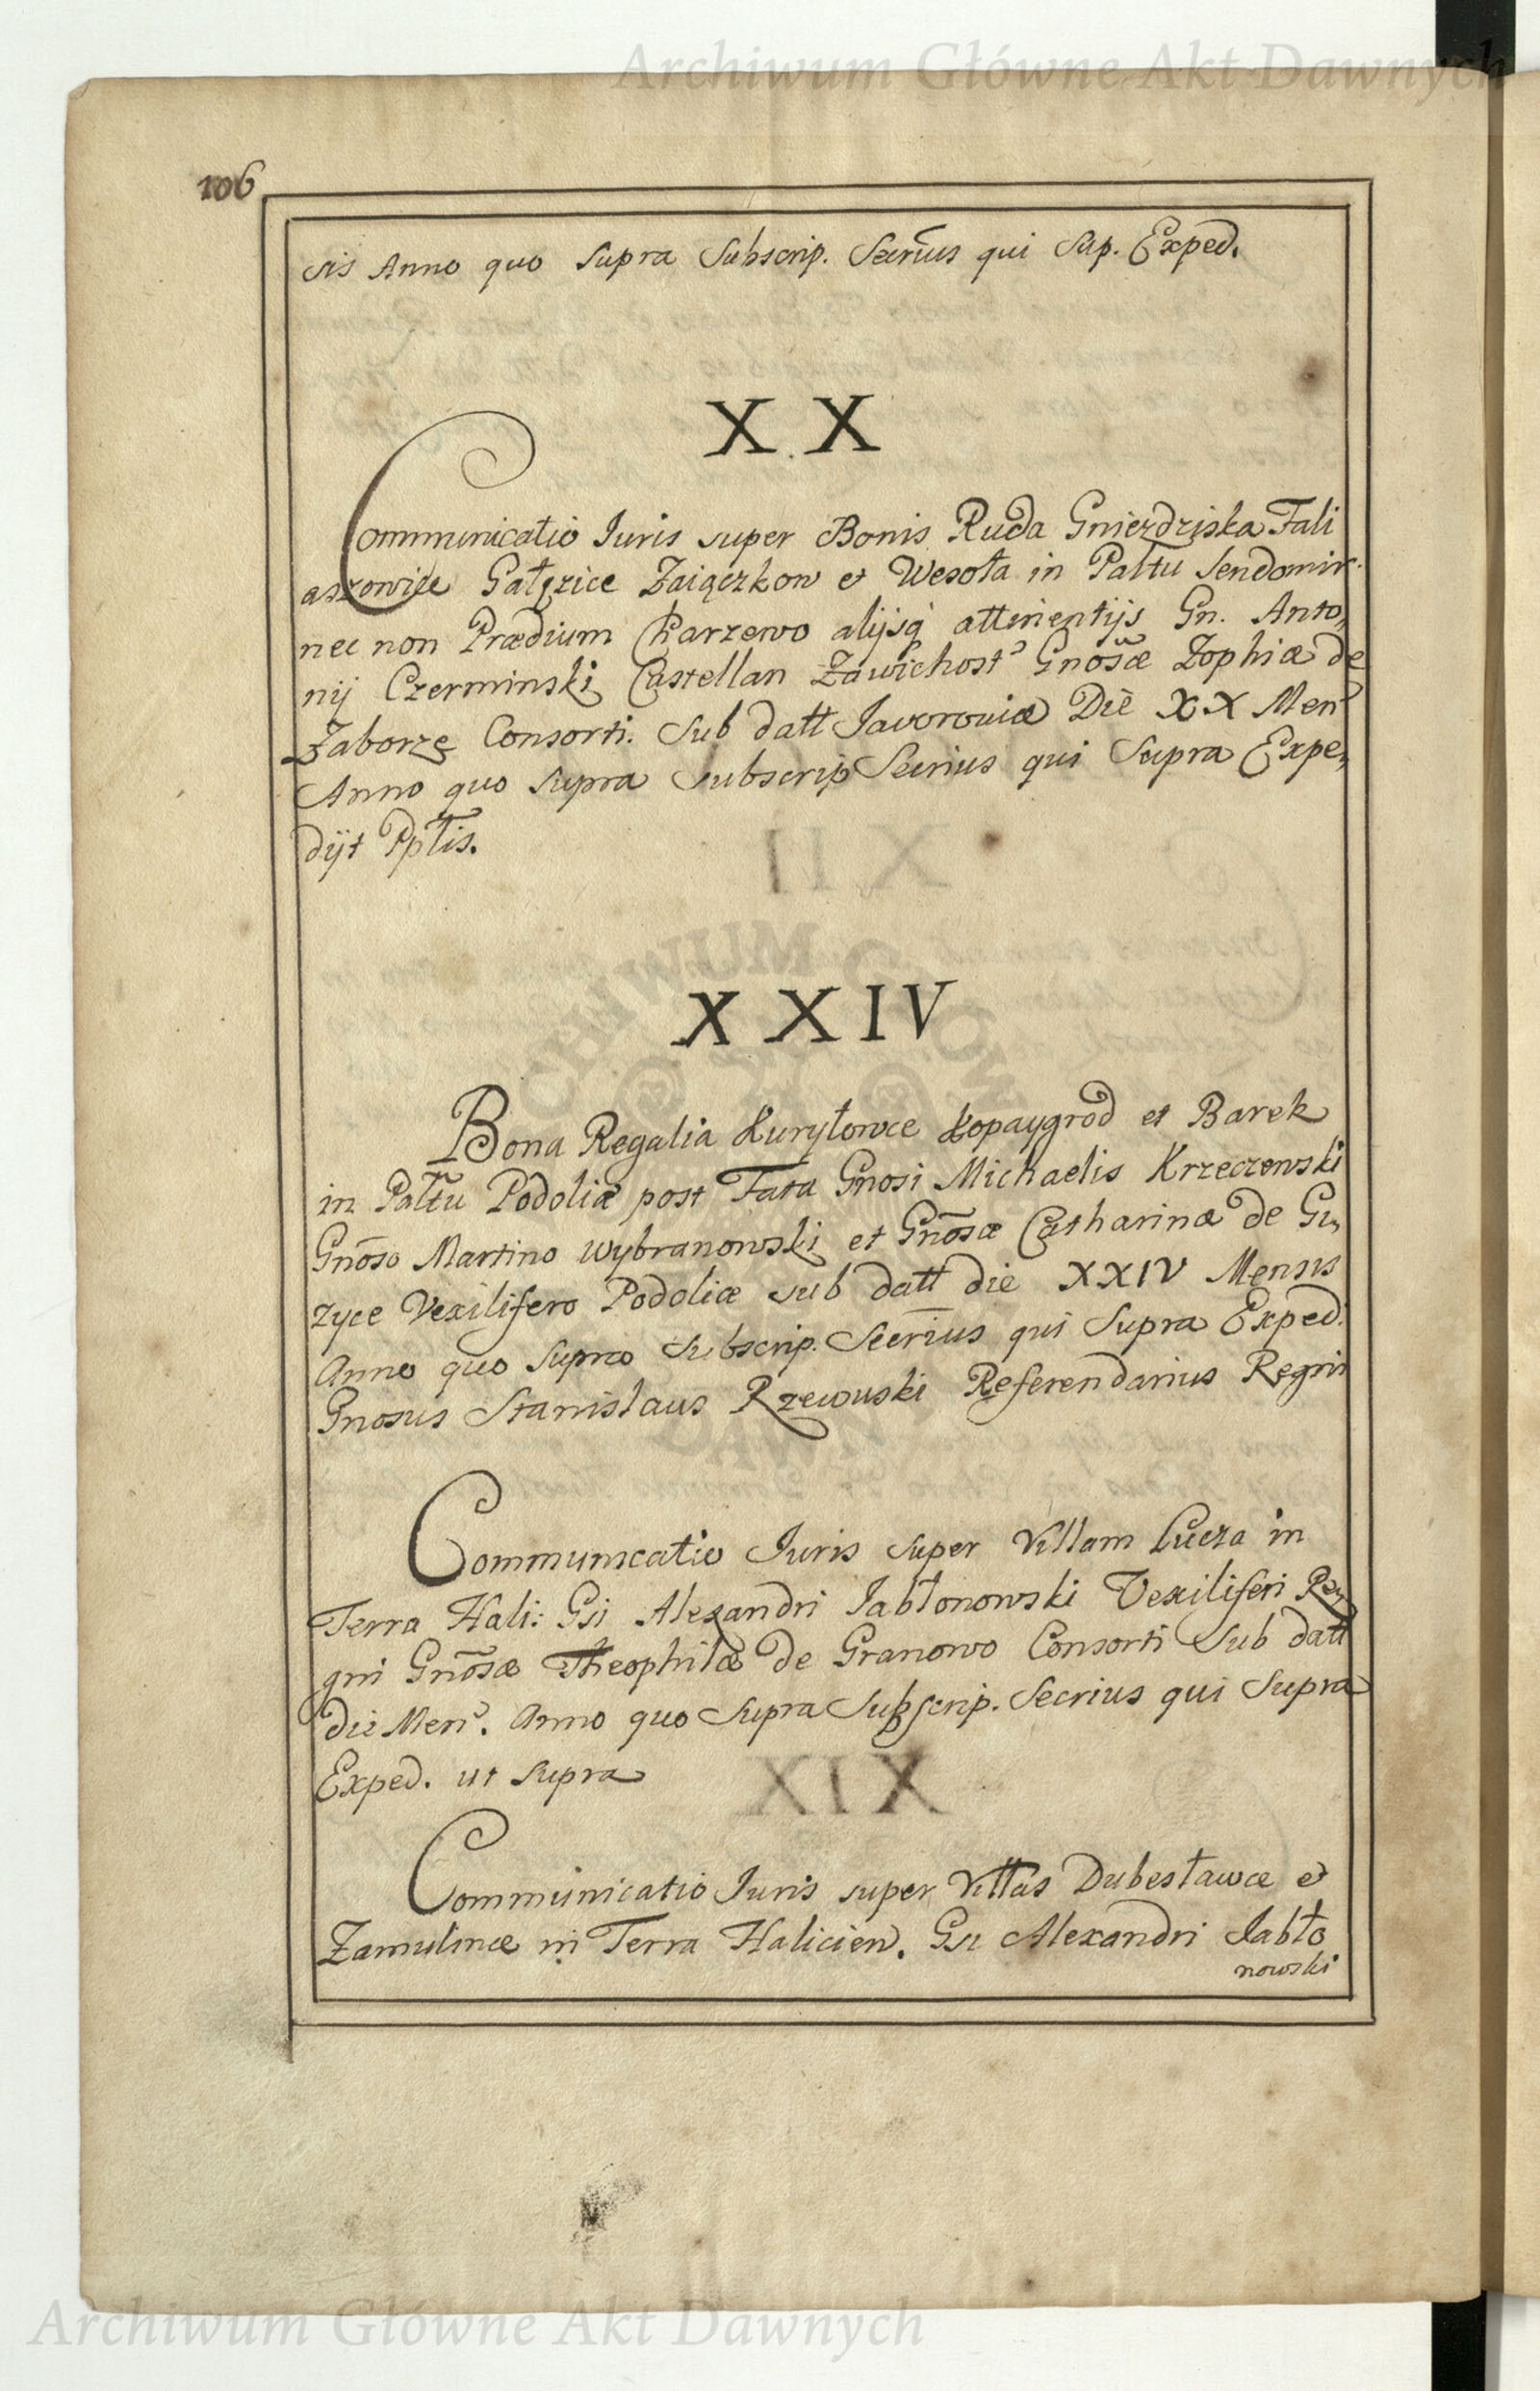 Archiwum Główne Akt Dawnych
106
sis Anno quo supra Subscrip. Secrius qui Sup. Exped.
XX
Communicatio Iuris super Bonis Ruda Gniezdziska Fali
aszowice Gałęzice Zaiączkow et Wesoła in Paltu Sendomir.
nec non Prædium Charzewo alijsq attinentijs Gn. Anto,
nij Czerminski Castellan Zawichost Gnosæ Zophiæ de
Zaborzę Consorti. Sub datt Javoroviæ Die XX Men
Anno quo supra subscrip Secrius qui Supra Expe,
dijt Pptis.
XXIV
Bona Regalia Kuryłowce Kopaygrod et Barek
in Paltu Podoliæ post Fata Gnosi Michaelis Krzeczewski
Gnoso Martino Wybranowski et Gnosæ Catharinæ de Gi,
zyce Vexilifero Podoliæ sub datt die XXIV Mensis
Anno quo Supra Subscrip. Secrius qui Supra Exped.
Gnosus Stanislaus Rzewuski Referendarius Regni
Communicatio Iuris super Villam Lucza in
Terra Hali: Gsi Alexandri Jabłonowski Vexiliferi Re,
gni Gnosæ Theophilæ de Granowo Consorti Sub datt
die Men. Anno quo Supra Subscrip. Secrius qui Supra
Exped. ut Supra
Communicatio Iuris super Villas Dubesławce et
Zamulince in Terra Halicien. Gsi Alexandri Jabło
nowski
Archiwum Główne Akt Dawnych